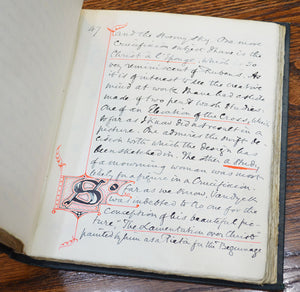 47
and the stormy sky. One more
crucifixion subject I have is the
Christ à l'Eponge, which is so
very reminiscent of Rubens. As
it is of interest to see the creative
mind at work I have had slides
made of two pen & wash studies
one of an Elevation of the Cross, which
so far as I know did not result in a
picture. One admires the
with which the design has
been sketched in. The other a study
of a mourning woman was most
likely for a figure in a Crucifixion.
So far as we know Vandyck
was indebted to no one for the
conception of his beautiful pic-
ture, "The Lamentation over Christ"
painted by him as a Pietà for the Beguinage